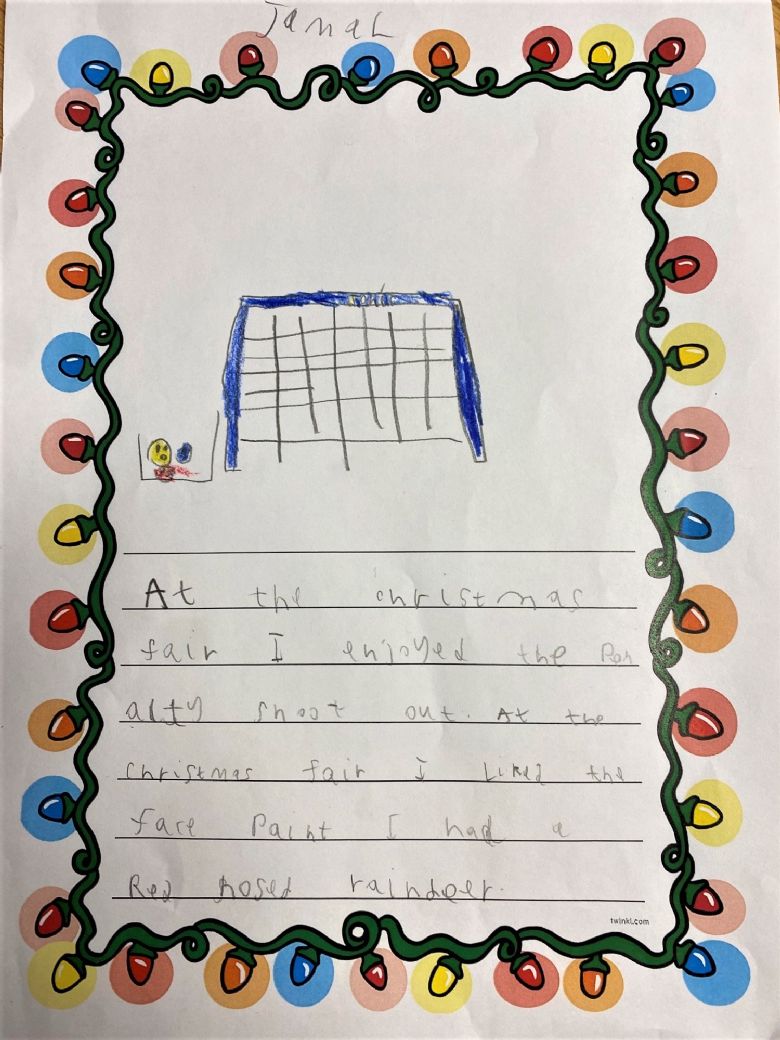 Jamal
At the christmas
fair I enjoyed the Pen
alty shoot out. At the
christmas fair I Liked the
face Paint I had a
Red nosed raindeer.
twinkl.com